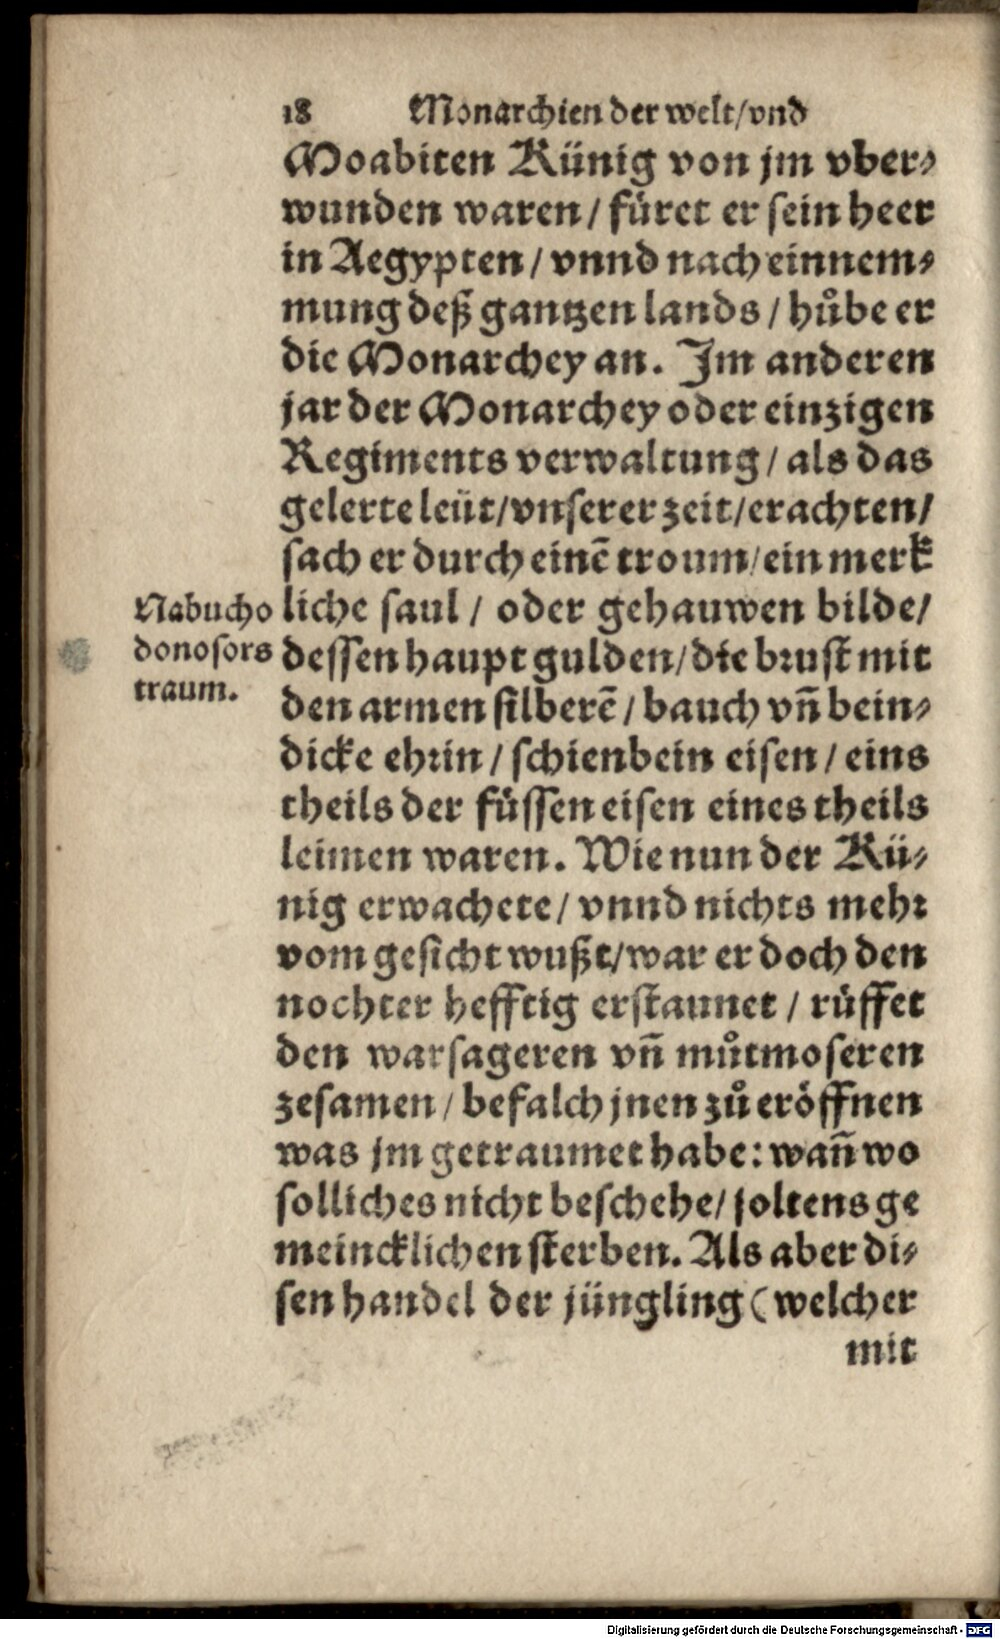 18 Monarchien der welt/vnd
Moabiten Künig von jm vber⸗
wunden waren/ füret er sein heer
in Aegypten/ vnnd nach einnem⸗
mung deß gantzen lands/ hůbe er
die Monarchey an. Im anderen
jar der Monarchey oder einzigen
Regiments verwaltung/ als das
gelerte leüt/vnserer zeit/erachten/
sach er durch einē troum/ein merk
Nabucho
donosors
traum.
liche saul/ oder gehauwen bilde/
dessen haupt gulden/die brust mit
den armen silberē/ bauch vñ bein⸗
dicke ehrin/ schienbein eisen/ eins
theils der füssen eisen eines theils
leimen waren. Wie nun der Kü⸗
nig erwachete/ vnnd nichts mehr
vom gesicht wußt/war er doch den
nochter hefftig erstaunet/ rüffet
den warsageren vñ můtmoseren
zesamen/ befalch jnen zů eröffnen
was jm getraumet habe: wañ wo
solliches nicht beschehe/ soltens ge
meincklichen sterben. Als aber di⸗
sen handel der jüngling (welcher
mit
Digitalisierung gefördert durch die Deutsche Forschungsgemeinschaft - DFG